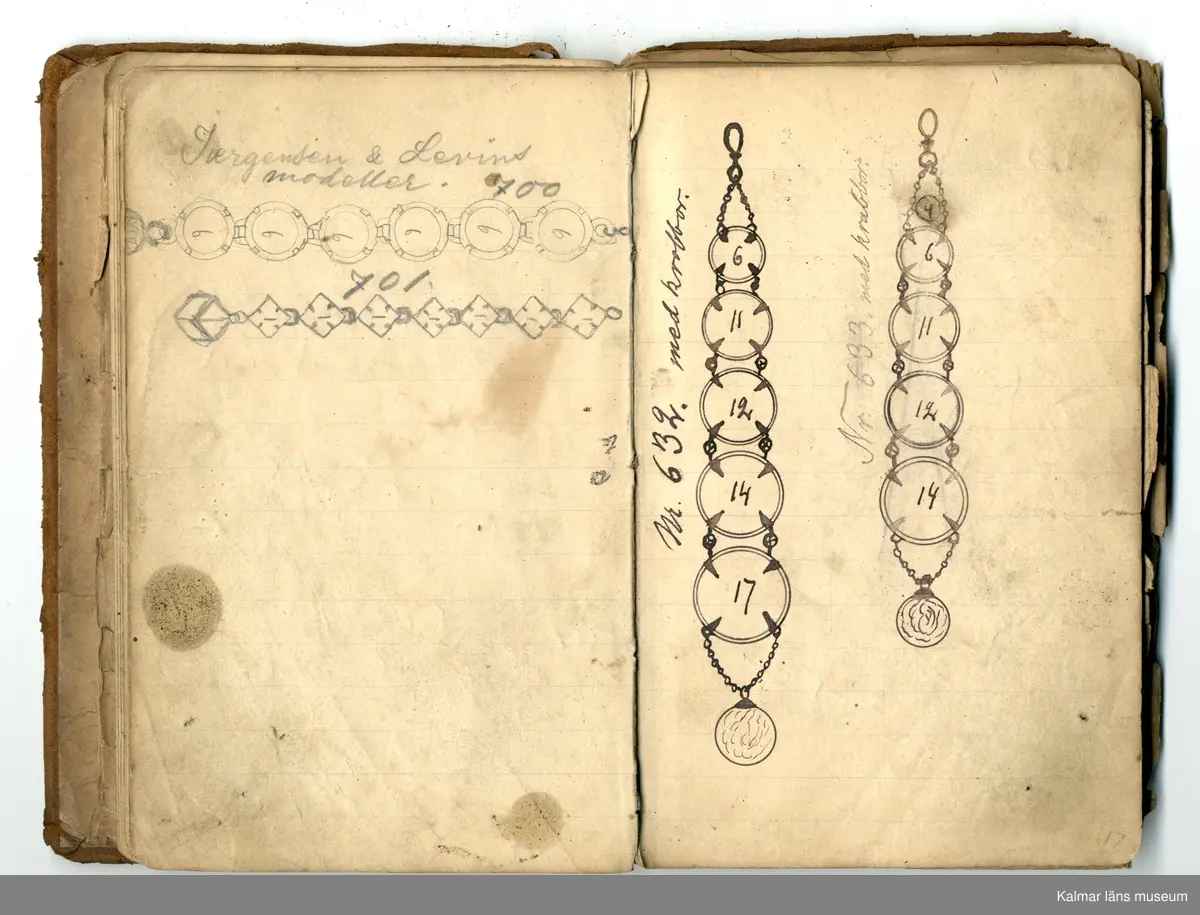 Jørgensen & Levins
modeller. 700
9 9 9 9 9 9
701.
1 1 1 1 1 1 1
Nr. 632. med krabbor.
6
11
12
14
17
Nr. 633. med krabbor.
4
6
11
12
14
17
Kalmar läns museum